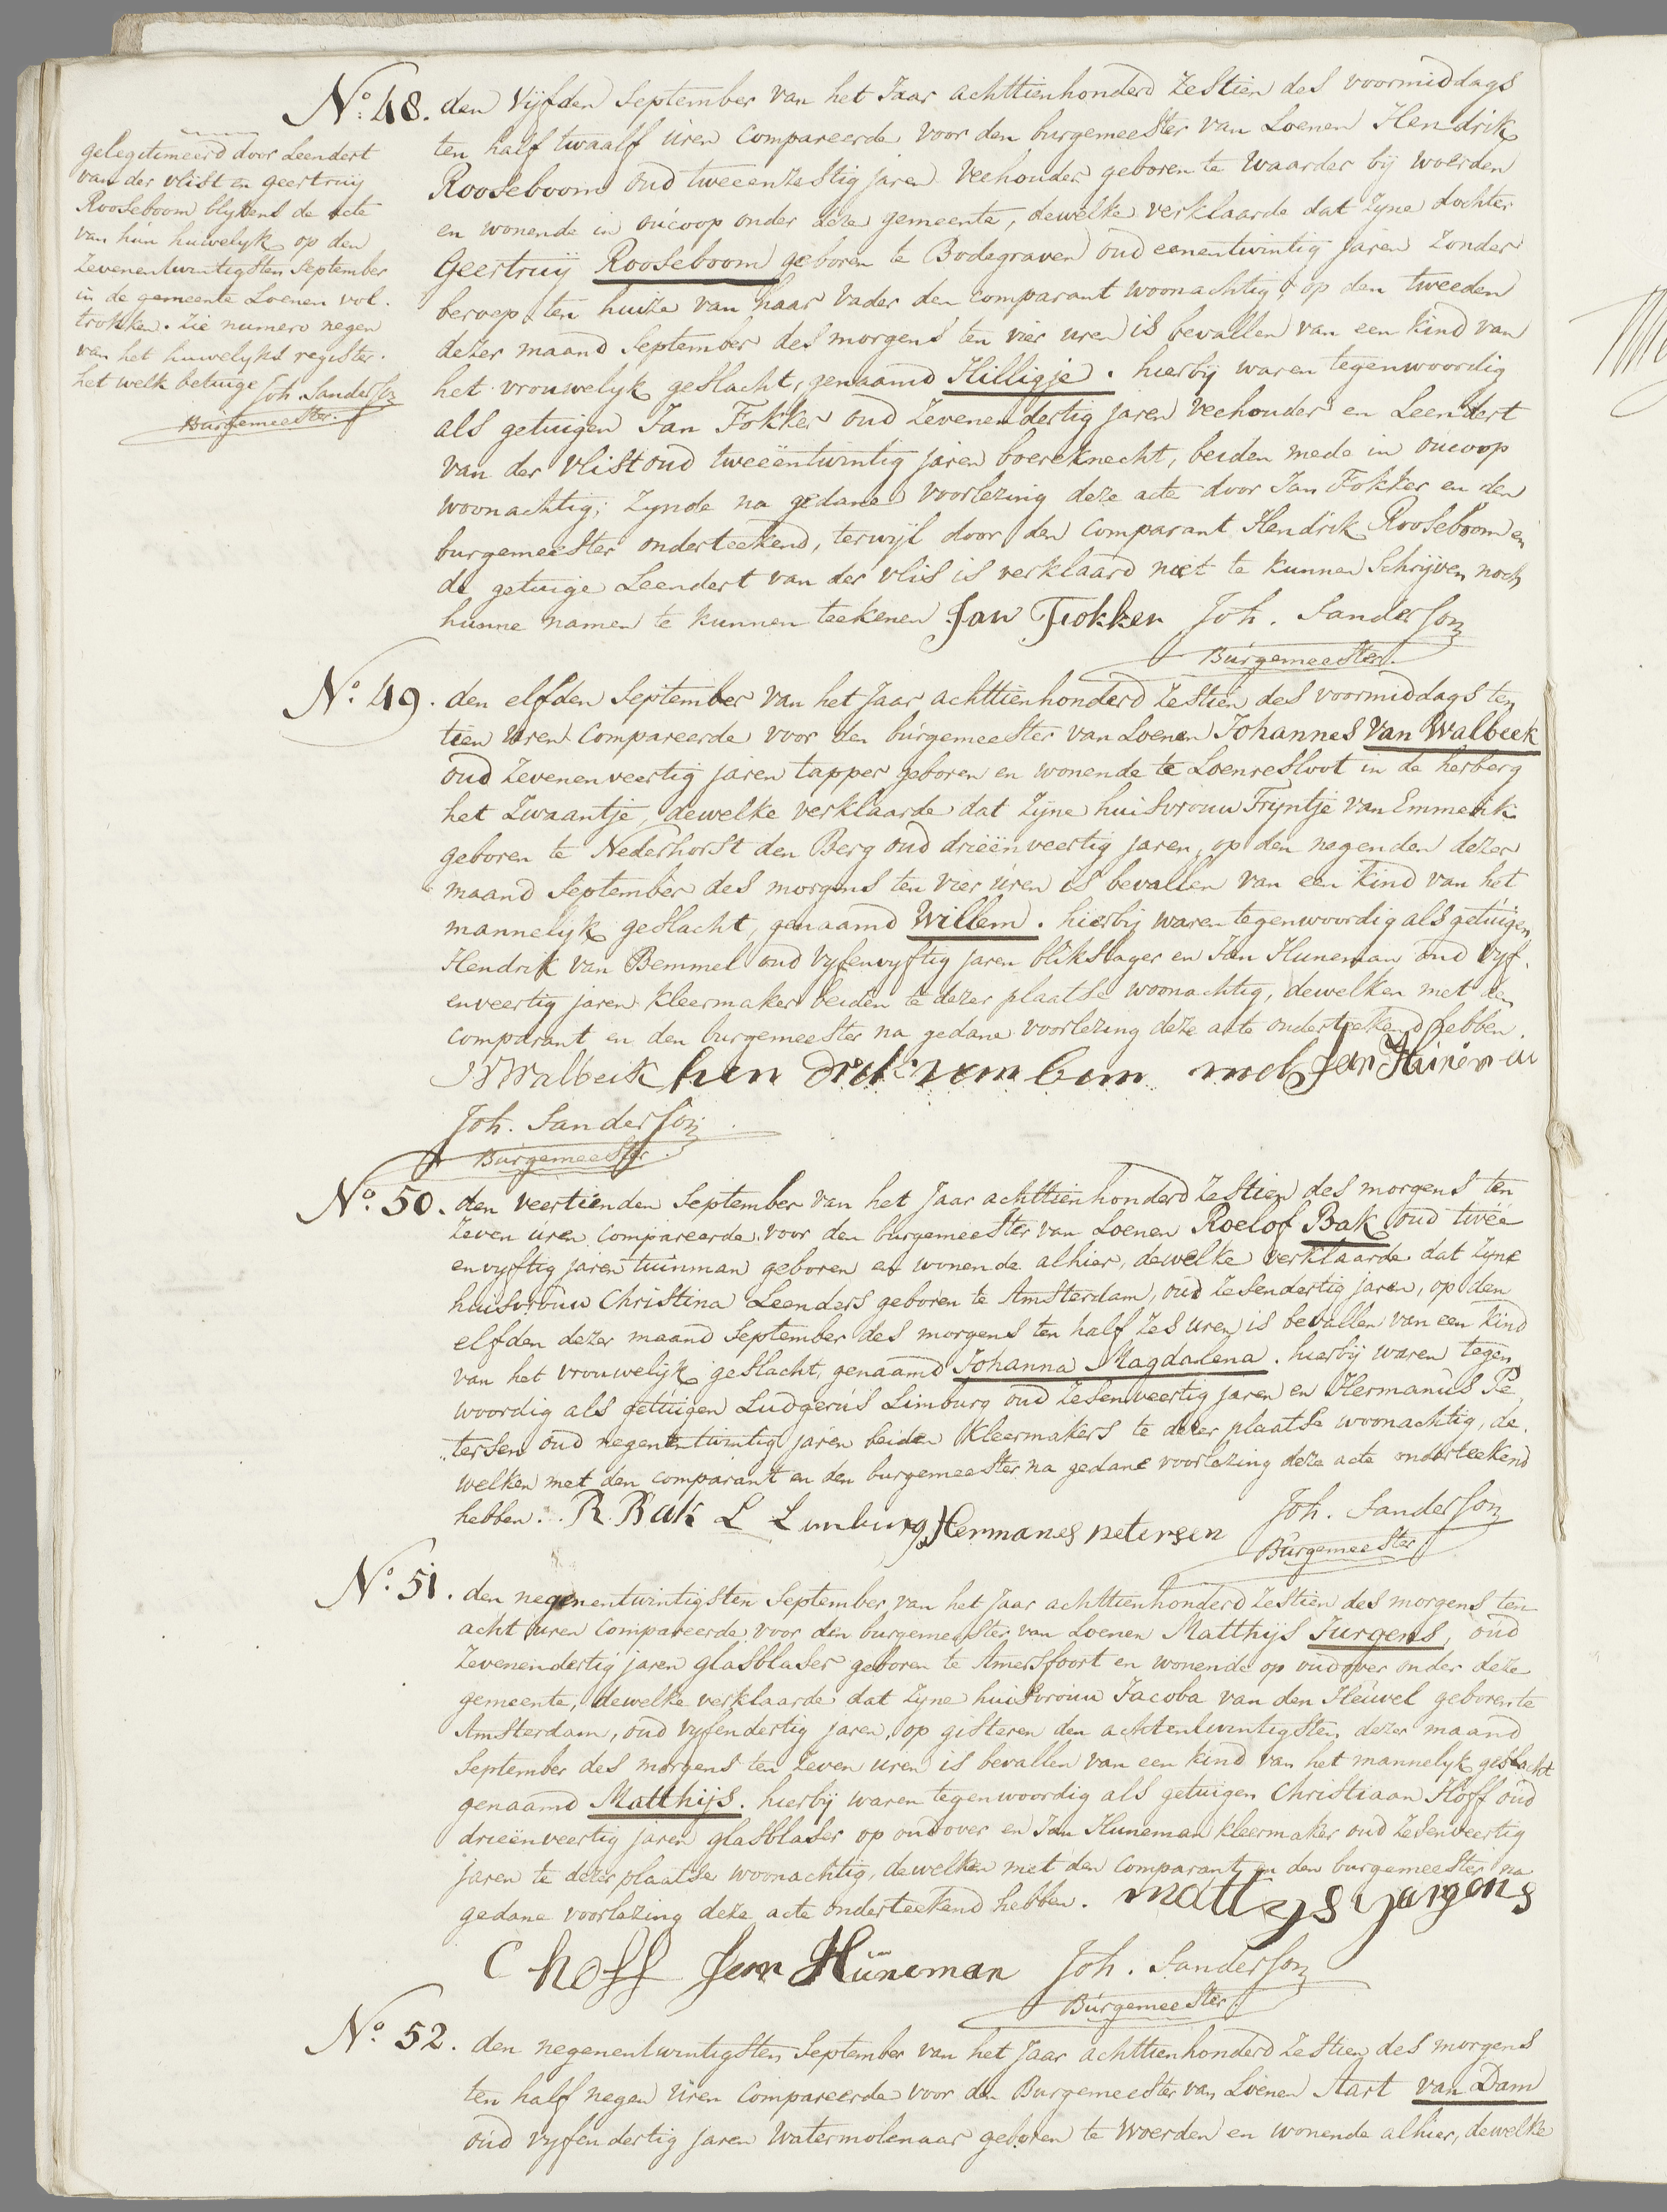 N.º 48. den Vijfden September van het Jaar achttienhonderd Zestien des voormiddags
ten half twaalf uren Compareerde voor den burgemeester van Loenen Hendrik
Rooseboom oud tweeenzestig jaren Veehouder geboren te Waarder bij Woerden
en wonende in oucoop onder deze gemeente, dewelke verklaarde dat Zyne dochter
Geertruij Rooseboom geboren te Bodegraven oud eenentwintig jaren Zonder
beroep ten huize van haar Vader den comparant woonachtig, op den tweeden
dezer maand September des morgens ten vier uren is bevallen van een kind van
het vrouwelyk geslacht, genaamd Hilligje. hierbij waren tegenwoordig
als getuigen Jan Fokker oud Zevenendertig jaren Veehouder en Leendert
van der Vlist oud tweeëntwintig jaren boereknecht, beiden mede in oucoop
woonachtig; Zynde na gedane voorlezing deze acte door Jan Fokker en den
burgemeester onderteekend, terwijl door den Comparant Hendrik Rooseboom en
de getuige Leendert van der Vlis is verklaard niet te kunnen Schrijven noch
hunne namen te kunnen teekenen Jan Fokker Joh. Sanderson
Burgemeester.
gelegitimeerd door Leendert
van der Vlist en geertruij
Rooseboom blykens de acte
van hun huwelyk op den
Zevenentwintigsten September
in de gemeente Loenen vol-
trokken. Zie numero negen
van het huwelyks register.
het welk betuige Joh. Sanderson
Burgemeester.
N.º 49. den elfden September van het Jaar achttienhonderd Zestien des voormiddags ten
tien uren Compareerde voor den burgemeester van Loenen Johannes Van Walbeek
oud Zevenenveertig jaren tapper geboren en wonende te Loenresloot in de herberg
het Zwaantje, dewelke verklaarde dat Zyne huisvrouw Trijntje van Emmerik
geboren te Nederhorst den Berg oud drieënveertig jaren, op den negenden dezer
maand September des morgens ten vier uren is bevallen van een kind van het
mannelyk geslacht, genaamd Willem. hierbij waren tegenwoordig als getuigen
Hendrik van Bemmel oud vyfenvyftig jaren blikslager en Jan Huneman oud vyf-
enveertig jaren kleermaker beiden te dezer plaatse woonachtig, dewelken met den
comparant en den burgemeester na gedane voorlezing deze acte onderteekend hebben.
JVWalbeik hen drik van bem mel Jan Huneman
Joh. Sanderson
Burgemeester.
N.º 50. den veertienden September van het Jaar achttienhonderd Zestien des morgens ten
Zeven uren Compareerde voor den burgemeester van Loenen Roelof Bak oud twee
envyftig jaren tuinman geboren en wonende alhier, dewelke verklaarde dat Zyne
huisvrouw Christina Leenders geboren te Amsterdam, oud Zesendertig jaren, op den
elfden dezer maand September des morgens ten half Zes uren is bevallen van een kind
van het vrouwelijk geslacht, genaamd Johanna Magdalena. hierbij waren tegen
woordig als getuigen Ludgerus Limburg oud Zesenveertig jaren en Hermanus Pe
tersen oud negenentwintig jaren beiden Kleermakers te dezer plaatse woonachtig, de
welken met den comparant en den burgemeester na gedane voorlezing deze acte onderteekend
hebben. R. Bak L Limburg Hermanes petersen Joh. Sanderson
Burgemeester
N.º 51. den negenentwintigsten September van het Jaar achttienhonderd Zestien des morgens ten
acht uren Compareerde voor den burgemeester van Loenen Matthijs Jurgens, oud
Zevenendertig jaren glasblaser geboren te Amersfoort en wonende op oudover onder deze
gemeente, dewelke verklaarde dat Zyne huisvrouw Jacoba van den Heuvel geboren te
Amsterdam, oud vyfendertig jaren, op gisteren den achtentwintigsten dezer maand
September des morgens ten Zeven uren is bevallen van een kind van het mannelyk geslacht
genaamd Matthijs. hierbij waren tegenwoordig als getuigen Christiaan Hoff oud
drieënveertig jaren glasblaser op oudover en Jan Huneman kleermaker oud Zesenveertig
jaren te dezer plaatse woonachtig, dewelken met den comparant en den burgemeester na
gedane voorlezing deze acte onderteekend hebben. mattys jurgens
C hoff Jan Hüneman Joh. Sanderson
Burgemeester
N.º 52. den negenentwintigsten September van het Jaar achttienhonderd Zestien des morgens
ten half negen uren Compareerde voor den Burgemeester van Loenen Aart van Dam
oud vyfendertig jaren Watermolenaar geboren te Woerden en wonende alhier, dewelke